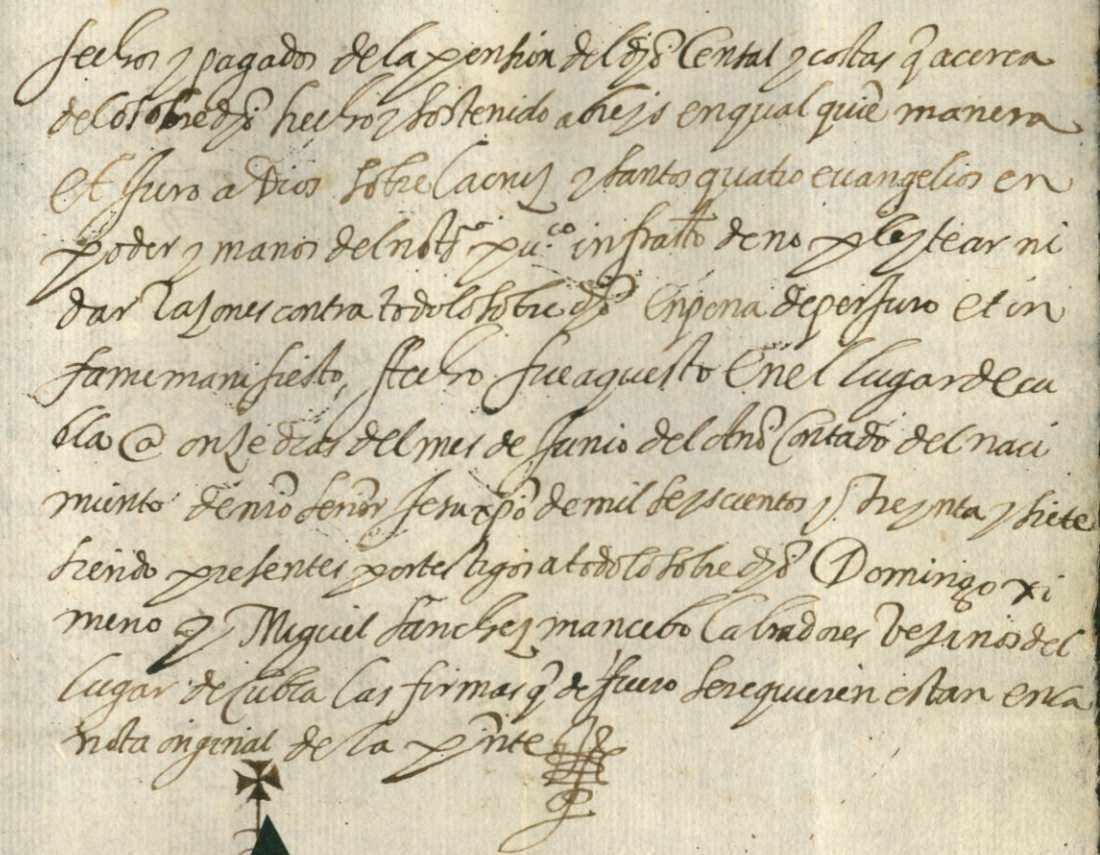 fechos y pagados de la pension del dho Censal y costas q̃ acerca
de lo sobredho hechoz y sostenido abreys en qual quiẽ manera
Et Juro a Dios sobre la cruz y santos quatro euangelios en
poder y manos del notº puco infratto de no pleytear ni
dar razones contra todo lo sobre dho En pena de perJuro et in
fame manifiesto, ffecho fue aquesto En el lugar de cu
bla @ onze dias del mes de Junio del Año Contado del naci
miento de nrõ senor Jesuxpõ de mil seyscientos y Treynta y siete
siendo presentes por testigos a todo lo sobre dho Domingo xi
meno y Miguel Sanchez mancebo labradores Vezinos del
lugar de Cubla las firmas q̃ de fuero se requieren estan en la
nota original de la pñte